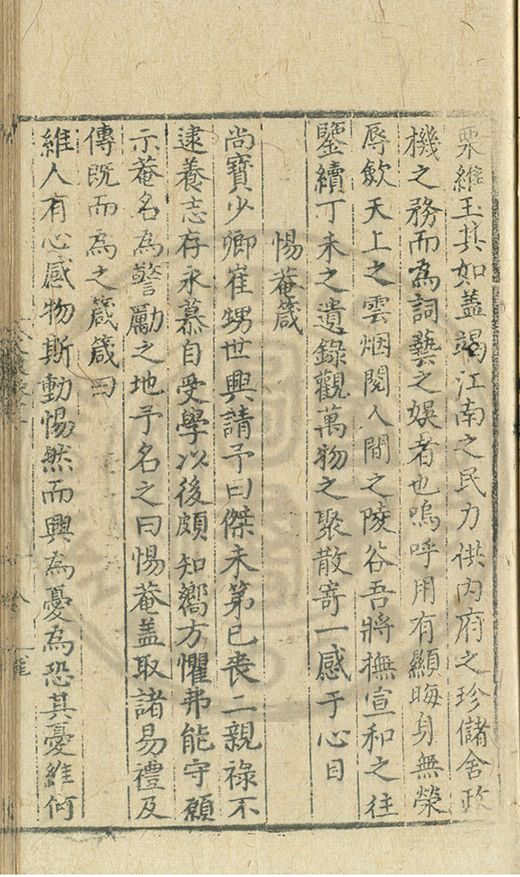 栗維玉其如蓋竭江南之民力供內府之珍儲舍政
機之務而為詞藝之娛者也嗚呼用有顯晦身無榮
辱歛天上之雲烟閱人間之陵谷吾將撫宣和之往
鑒續丁未之遺錄觀萬物之聚散寄一感于心目
惕菴箴
尚寶少卿崔甥世興請予曰傑未第已喪二親祿不
逮養志存永慕自受學以後頗知嚮方懼弗能守願
示菴名為警勵之地予名之曰惕菴蓋取諸易禮及
傳既而為之箴箴曰
維人有心感物斯動惕然而興為憂為恐其憂維何